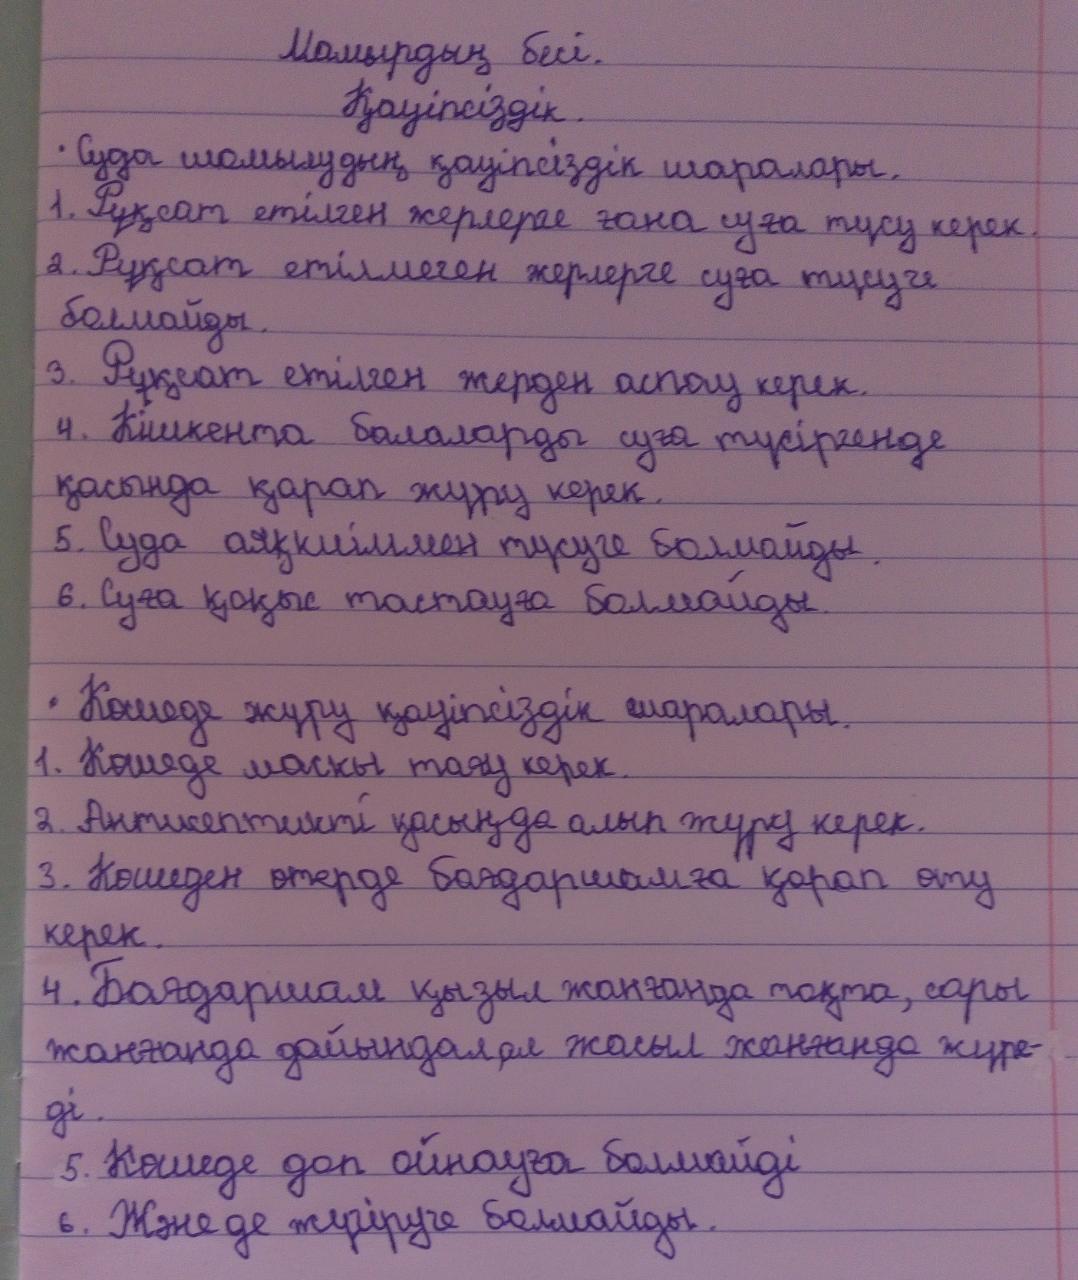 Мамырдың бесі.
Қауіпсіздік.
· Суда шомылудың қауіпсіздік шаралары.
1. Рұқсат етілген жерлерге ғана суға түсу керек.
2. Рұқсат етілмеген жерлерге суға түсуге
болмайды.
3. Рұқсат етілген жерден аспау керек.
4. Кішкента балаларды суға түсіргенде
қасында қарап жүру керек.
5. Суда аяқкиіммен түсуге болмайды.
6. Суға қоқыс тастауға болмайды.
· Көшеде жүру қауіпсіздік шаралары.
1. Көшеде маскы тағу керек.
2. Антисептикті қасыңда алып жүру керек.
3. Көшеден өтерде бағдаршамға қарап өту
керек.
4. Бағдаршам қызыл жанғанда тоқта, сары
жанғанда дайындал, ал жасыл жанғанда жүре-
ді.
5. Көшеде доп ойнауға болмайді
6. Және де жүгіруге болмайды.